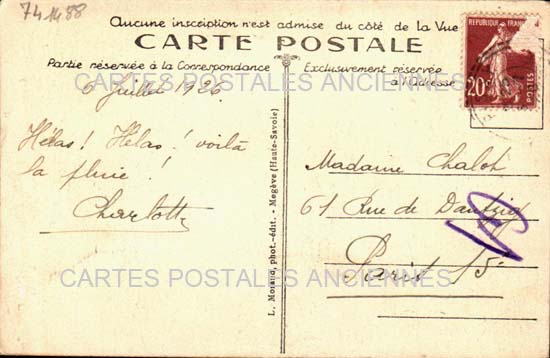 74 1488
Aucune inscription n'est admise du côté de la Vue
CARTE POSTALE
Partie réservée à la Correspondance
Exclusivement réservée
à l'Adresse
REPUBLIQUE FRANC
20
POSTES
CARTES POSTALES ANCIENNES
6 Juillet 1926
Hélas! Hélas! voilà
la pluie!
Charlotte
L. Morand, phot.-édit. - Megève (Haute-Savoie)
Madame Chalot
61 Rue de Dantzig
Paris 15e
CARTES POSTALES ANCIENNES